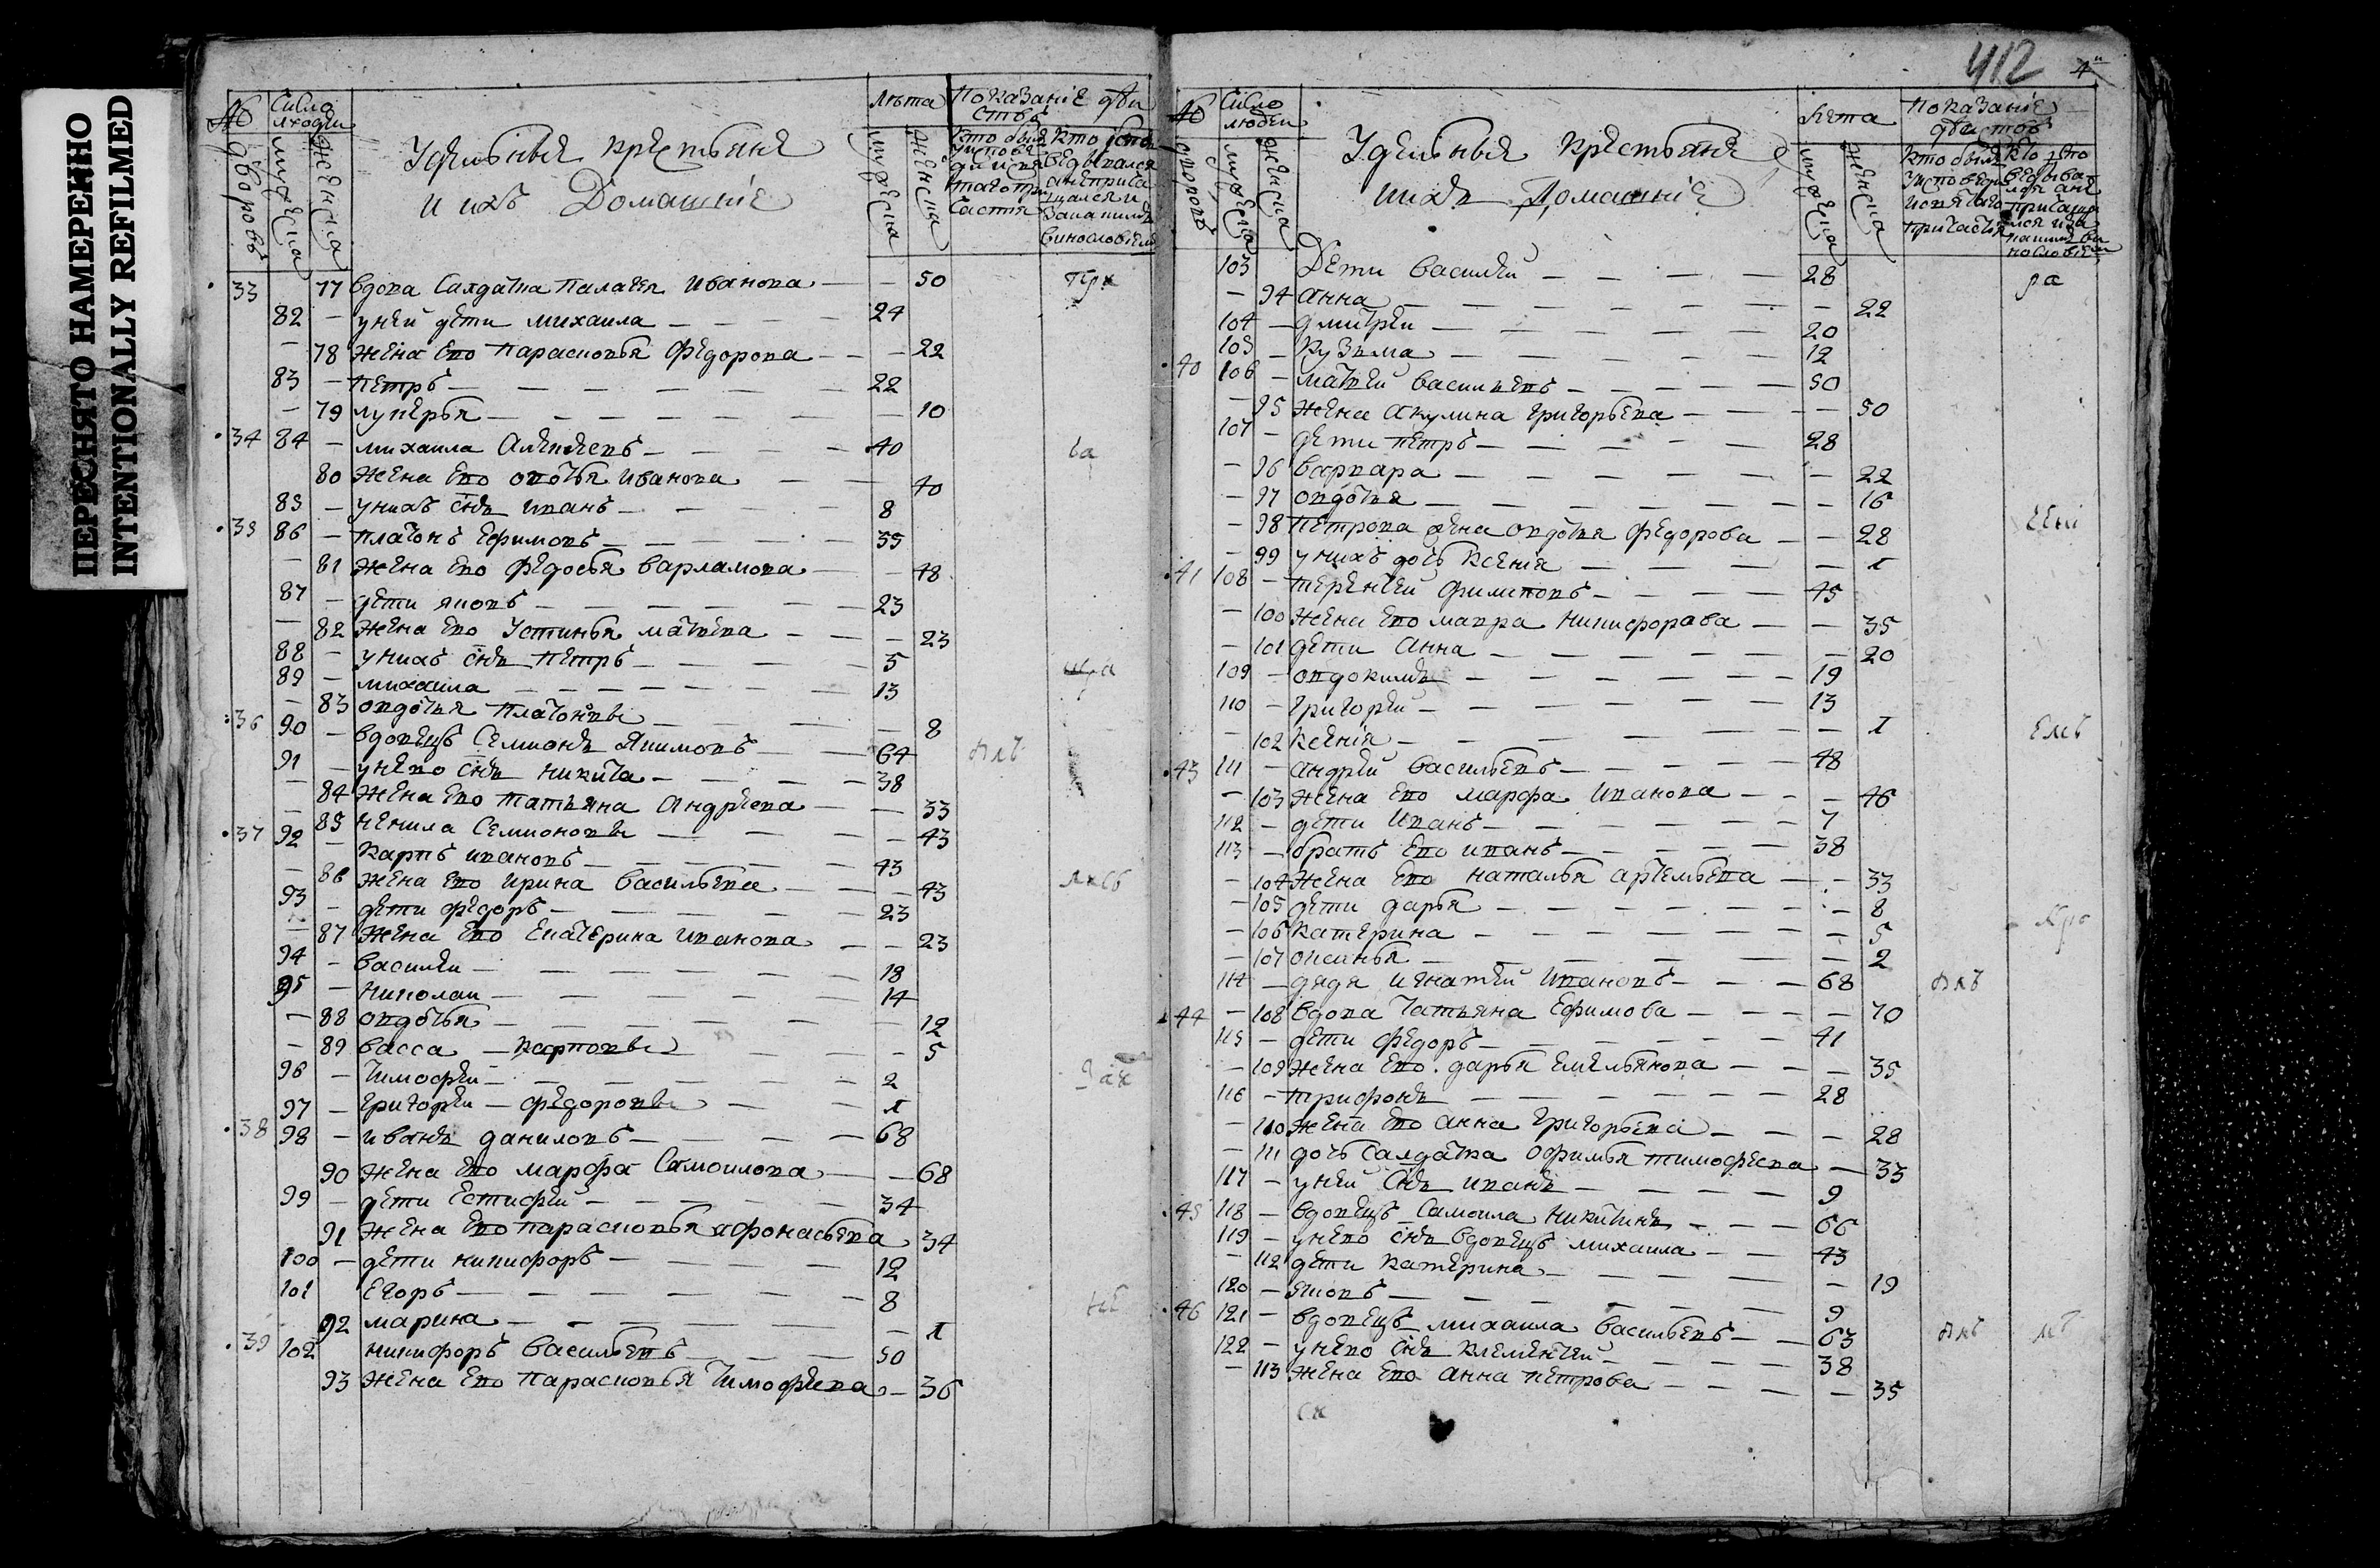 ПЕРЕСНЯТО НАМЕРЕННО
INTENTIONALLY REFILMED
№ дворовъ
Число людей
мужеска
женска
Удельныя крестьяне
и ихъ Домашние
лѣта
мужеска
женска
Показание действъ
33 77 вдова Салдатка Палагея Иванова — 50
82 — у ней дети михаила — 24
— 78 жена ево парасковья Федорова — 22
83 — петръ — 22
— 79 лукерья — 10
34 84 — михаила Алексеевъ — 40
80 жена ево овдотья Иванова — 40
85 — у нихъ снъ иванъ — 8
35 86 — платонъ Ефимовъ — 55
— 81 жена ево федосья варламова — 48
87 — дети яковъ — 23
— 82 жена ево Устинья матвева — 23
88 — у нихъ снъ петръ — 5
89 — михаила — 13
— 83 овдотья платоновы — 8
36 90 — вдовецъ Семионъ Якимовъ — 64
91 — у нево снъ никита — 38
— 84 жена ево татьяна Андреева — 33
— 85 ненила Семионовы — 43
37 92 — карпъ ивановъ — 43
— 86 жена ево ирина васильева — 43
93 — дети федоръ — 23
— 87 жена ево Екатерина иванова — 23
94 — василеи — 18
95 — николаи — 14
— 88 овдотья — 12
— 89 васса — карповы — 5
96 — тимофеи — 2
97 — григореи — федоровы — 1
38 98 — иванъ даниловъ — 68
90 жена ево марфа Самоилова — 68
99 — дети Естифеи — 34
91 жена ево парасковья афонасьева 34
100 — дети никифоръ — 12
101 Егоръ — 8
92 марина — 1
39 102 никифоръ васильевъ — 50
93 жена ево парасковья тимофеева — 36
412
4
№ дворовъ
Число людеи
мужеска
женска
Удельныя крестьяне
и ихъ Домашние
лета
мужеска
женска
Показание действъ
103 Дети василеи — 28
— 94 анна — 22
104 — дмитреи — 20
105 — кузьма — 12
40 106 — матвеи васильевъ — 50
— 95 жена акулина григорьева — 50
107 — дети петръ — 28
— 96 варвара — 22
— 97 овдотья — 16
— 98 петрова жена овдотья федорова — 28
— 99 у нихъ дочь ксения — 1
41 108 — терентеи филиповъ — 45
— 100 жена ево мавра никифорава — 35
— 101 дети анна — 20
109 — овдокимъ — 19
110 — григореи — 13
— 102 ксения — 1
43 111 — андреи васильевъ — 48
— 103 жена ево марфа иванова — 46
112 — дети иванъ — 7
113 — братъ ево иванъ — 38
— 104 жена ево наталья артемьева — 33
— 105 дети дарья — 8
— 106 катерина — 5
— 107 оксинья — 2
114 — дядя игнатеи ивановъ — 68
44 — 108 вдова татьяна Ефимова — 70
115 — дети федоръ — 41
— 109 жена ево дарья Емельянова — 35
116 — трифонъ — 28
— 110 жена ево анна григорьева — 28
— 111 дочь салдатка офимья тимофеева — 33
117 — у ней снъ иванъ — 9
45 118 — вдовецъ Самоила никитинъ — 66
119 — у нево снъ вдовецъ михаила — 43
— 112 дети катерина — 19
120 — яковъ — 9
46 121 — вдовецъ михаила васильевъ — 63
122 — у нево снъ клементеи — 38
— 113 жена ево анна петрова — 35